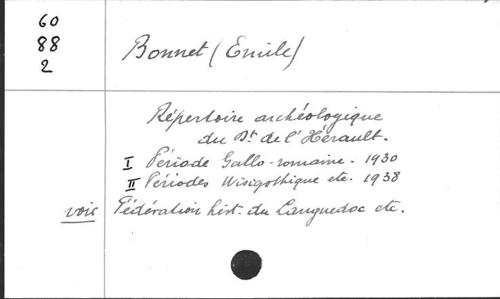 60
88
2
Bonnet (Emile)
Répertoire archéologique
du Dt. de l'Hérault.
I Période Gallo-romaine. 1930
II Périodes Wisigothique etc. 1938
voir Fédération hist. du Languedoc etc.